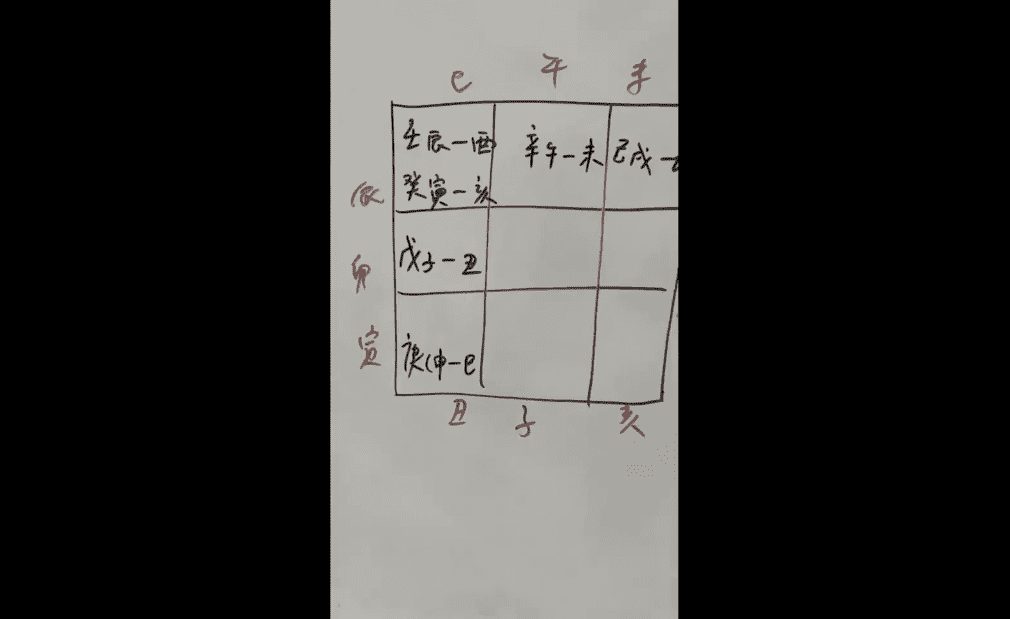 巳 午 未
壬辰一酉 辛午一未 己戌一
癸寅一亥
辰
卯 戊子一丑
寅 庚申一巳
丑 子 亥